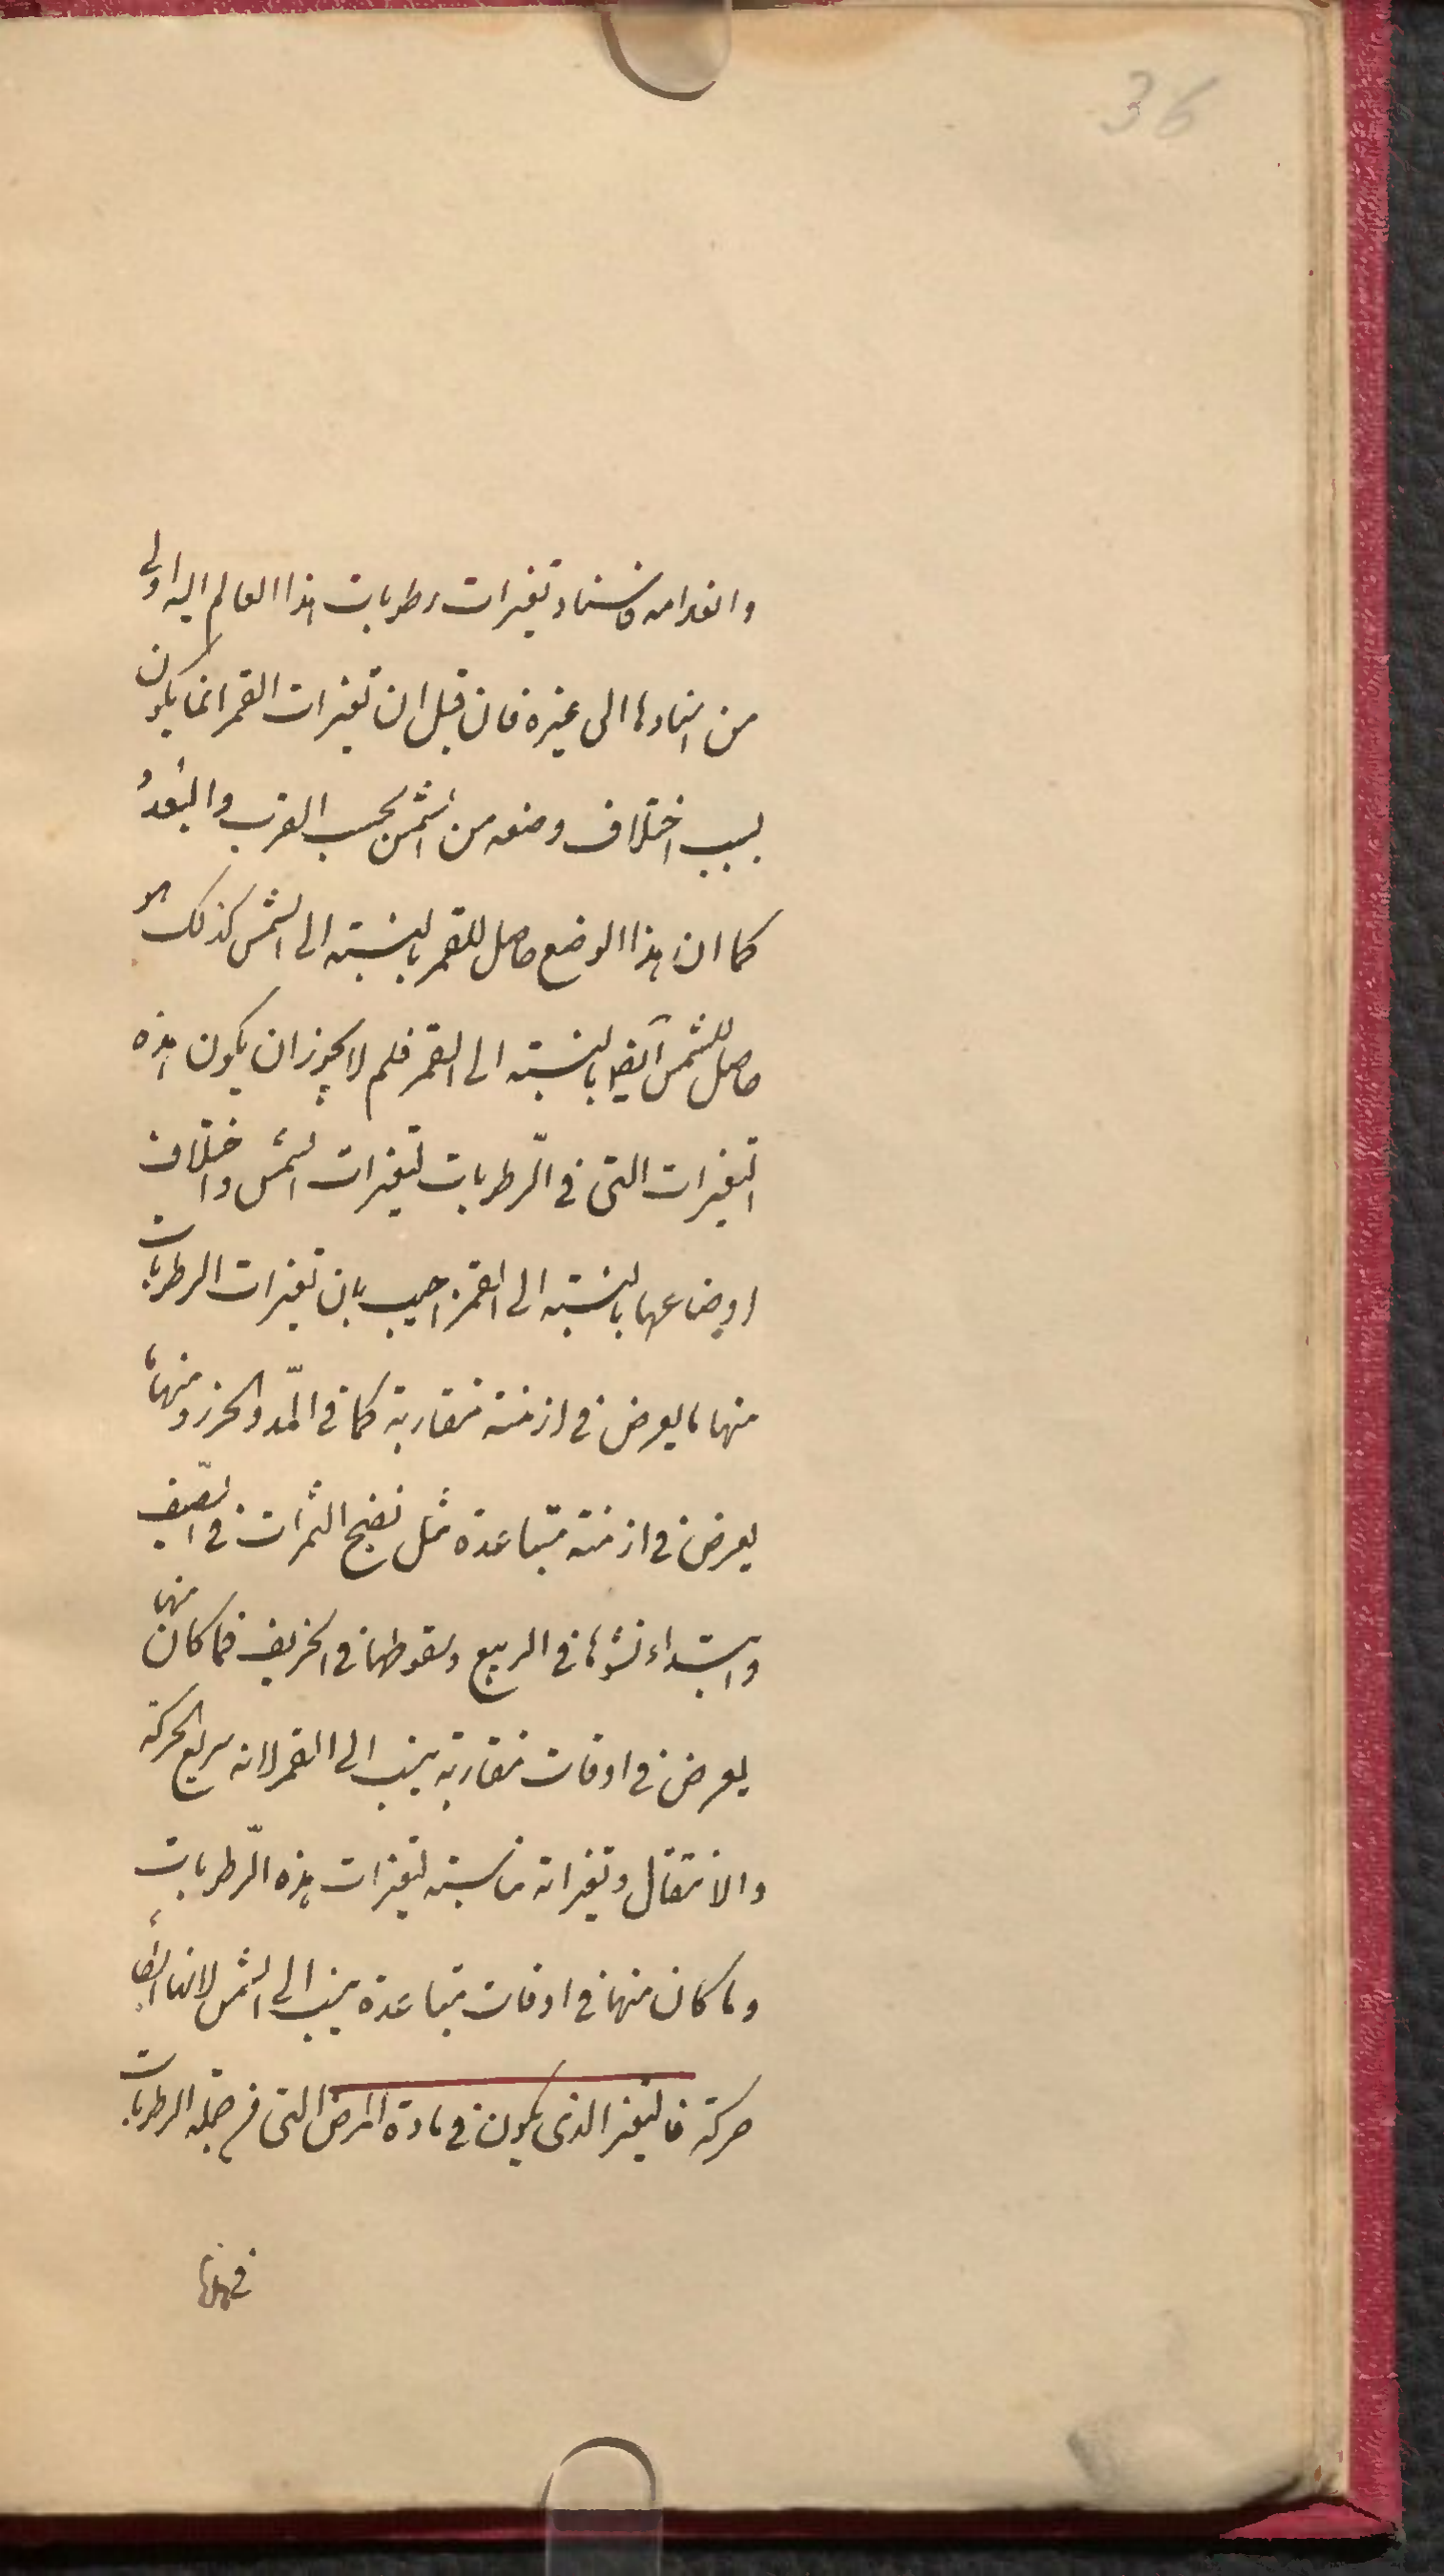 36
وانعدامه فاسناد تغيرات رطوبات هذا العالم اليه اولى
من اسنادها الى غيره فان قيل ان تغيرات القمر انما يكون
بسبب اختلاف وضعه من الشمس بحسب القرب والبعد و
كما ان هذا الوضع حاصل للقمر بالنسبة الى الشمس كذلك هو
حاصل للشمس ايضا بالنسبة الى القمر فلم لا يجوز ان يكون هذه
التغيرات التى فى الرّطوبات لتغيرات الشمس واختلاف
اوضاعها بالنسبة الى القمر اجيب بان تغيرات الرطوبات
منها ما يعرض فى ازمنة متقاربة كما فى المّد والجزر ومنها ما
يعرض فى ازمنة متباعدة مثل نضج الثمرات فى الصّيف
وابتداء نشوها فى الربيع وسقوطها فى الخريف فما كان منها
يعرض فى اوقات متقاربة ينسب الى القمر لانه سريع الحركة
والانتقال وتغيراته مناسبة لتغيرات هذه الرّطوبات
وما كان منها فى اوقات متباعدة ينسب الى الشمس لانها ابطأ
حركة فالتغير الذى يكون فى مادة المرض التى هى من جملة الرطوبات